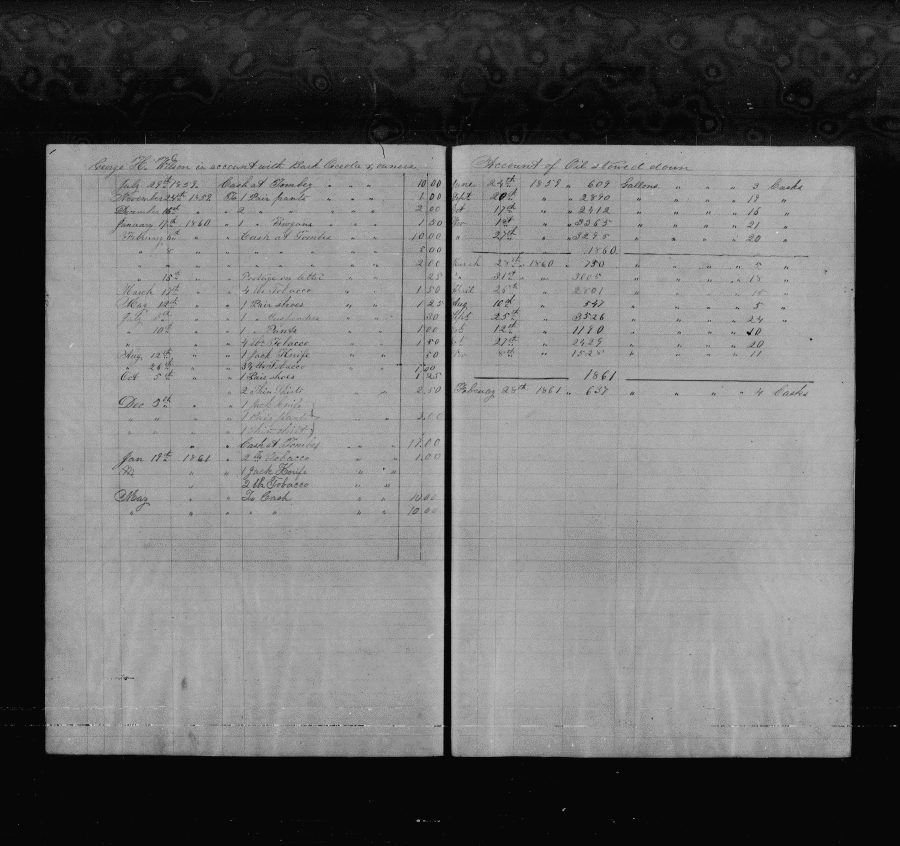 George H. Wilson in account with Bark Osceola & owners
July 29th 1859 Cash at Tombez " " " 10.00
November 24th 1859 To 1 Pair pants " " " 1.00
December 15th " " 2 " " " " " 2.00
January 17th 1860 " 1 " Brogans " " " 1.50
February 6th " " Cash at Tombes " " 10.00
" " " " " " 5.00
" " " " " " " 2.00
" 15th " " Postage on letter " " 25
March 17th " " 4 lbs Tobacco " " 1.50
May 12th " " 1 Pair shoes " " 1.25
July " " 1 " Suspenders " " 30
" 10th " " 1 " Pants " " 1.00
" " " 4 lbs Tobacco " " 1.50
Aug 12th " " 1 Jack Knife " " 50
" 26th " " lbs Tobacco " " 1.50
Oct 5th " " 1 Pair shoes 1.25
" 2 Thin Shirts " " 2.50
Dec " " 1 Jack Knife
" " " " 1 Pair pants 3.00
" " " " 1 shirt
" " Cash at Tombes " " 17.00
Jan 19th 1861 " 2 lb Tobacco " " 1.00
" " 1 Jack Knife " "
" " 2 lb Tobacco " "
May " " To Cash " " 10.00
" " " " " " " 10.00
Account of Oil stowed down
June 24th 1859 " 609 Gallons " " " 3 Casks
Sept 20th " " 2890 " " " " 19 "
Oct 17th " " 2412 " " " " 16 "
Nov 1st " " 3265 " " " " 21 "
" 27th " " 3295 " " " " 20 "
1860
March 28th 1860 " 750 " " " " 5 "
" 21st " " 3005 " " " " 18 "
" 26th " " 2801 " " " " 16 "
Aug 10th " " 547 " " " " 5 "
Sept 25th " " 3526 " " " " 24 "
Oct 12th " " 1190 " " " " 10
Oct 27th " " 2429 " " " " 20
Nov 8th " " 1528 " " " " 11
1861
February 28th 1861 " 637 " " " " 4 Casks